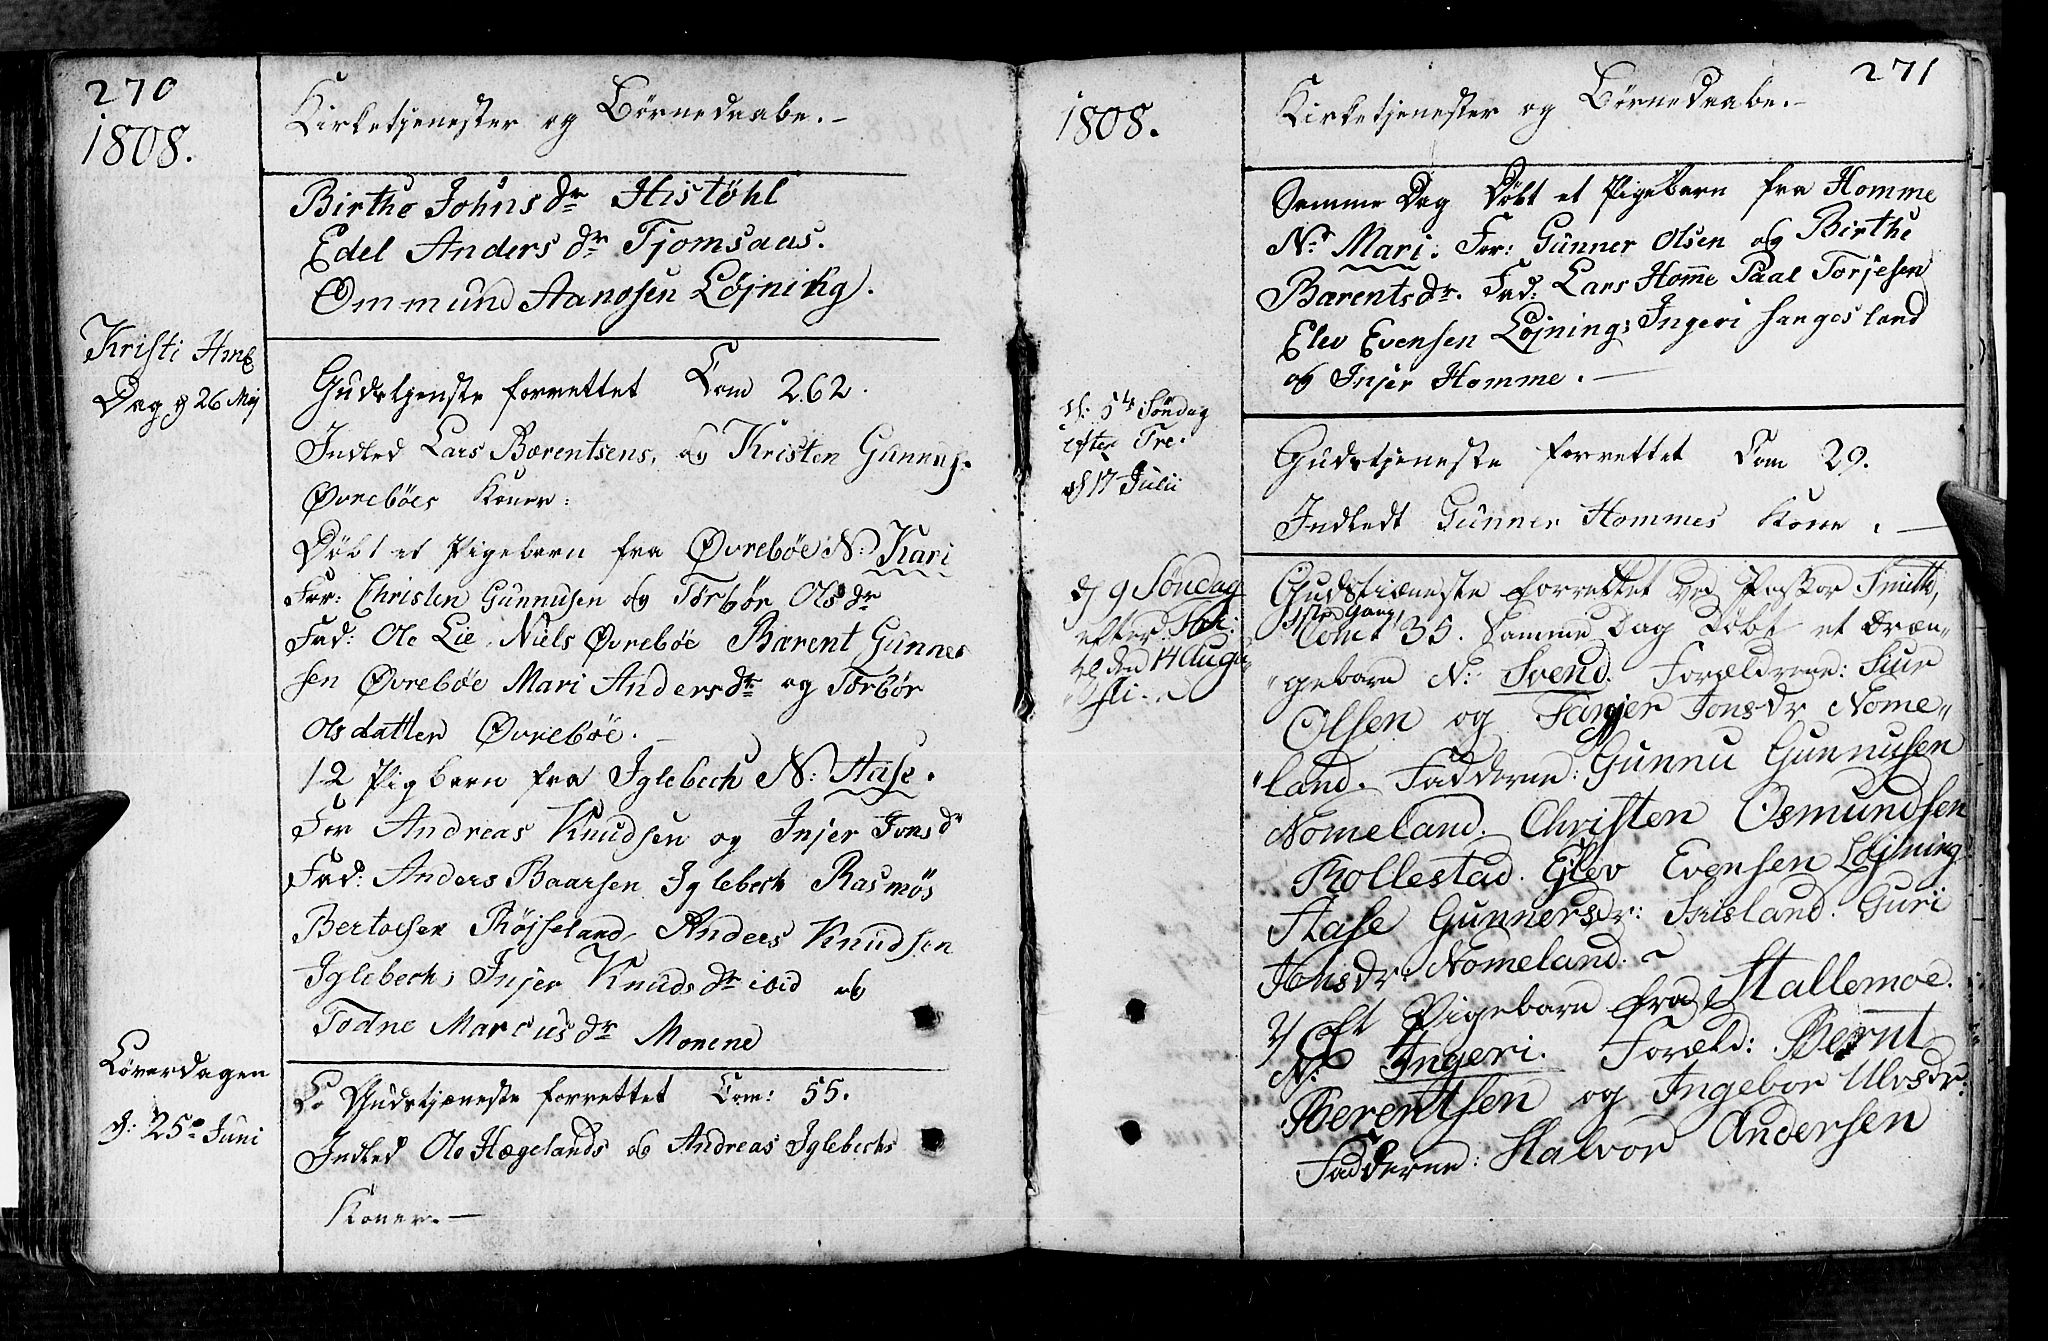 270
1808.
Kirketjenester og Børnedaabe.
Birthe Johnsdr Histøhl
Edel Andersdr Tjomsaas.
Ommund Aanosen Løjning.
Kristi Himf
Dag d 26 Maj
Gudstjenste forrettet Com 262.
Indled Lars Bærentsens, og Kristen Gunnus.
Øvrebøes Koner:
Døbt et Pigebarn fra Øvrebøe N: Kari
For: Christen Gunnusen og Torbør Olsdr
Fad: Ole Lie, Niels Øvrebøe Bærent Gunne
sen Øvrebøe Mari Andersdr og Torbør
Olsdatter Øvrebøe.
2 Pigbarn fra Iglebech N: Aase.
For Andreas Knudsen og Injer Jonsd
Fad: Anders Baarsen Iglebech Rasmøs
Bertoesen Røjseland, Anders Knudsen
Iglebech, Injer Knudsdr ibid og
Todne Marcusdr Monene
Løverdagen
d: 25e Juni
Gudstjæneste forrettet Com: 55.
Indled Ole Hægelands og Andreas Iglebechs
Koner.
271
1808.
Kirketjenester og Børnedaabe.
Samme Dag Døbt et Pigebarn fra Homme
N: Mari. For: Gunner Olsen og Birthe
Bærentsdr. Fad: Lars Homme Paal Torjesen
Elev Evensen Løjning, Ingeri Haugesland
og Injer Homme.
d: 5te Søndag
efter Tre.
d 17 Julii
Gudstjeneste forrettet Com 29.
Indledt Gunner Hommes Kone.
d 9 Søndag
efter Tri:
den 14 Augu
sti
Gudstieneste forrettet ved Pastor Smith,
1ste Gang,
Comt 35. Samme Dag Døbt et Dræn-
gebarn N: Svend. Forældrene: Siur
Olsen og Tanjer Jonsdr Nome-
land. Fadderne: Gunnu Gunnusen
Nomeland. Christen Osmundsen
Rollestad. Elev Evensen Løjning
Aase Gunnersdr: Frisland. Guri
Jonsdr: Nomeland.
2/ Et Pigebarn fra Stallemoe.
N: Ingeri. Foræld: Bernt
Berentsen og Ingebor Ulvsdr:
Fadderne: Halvor Andersen